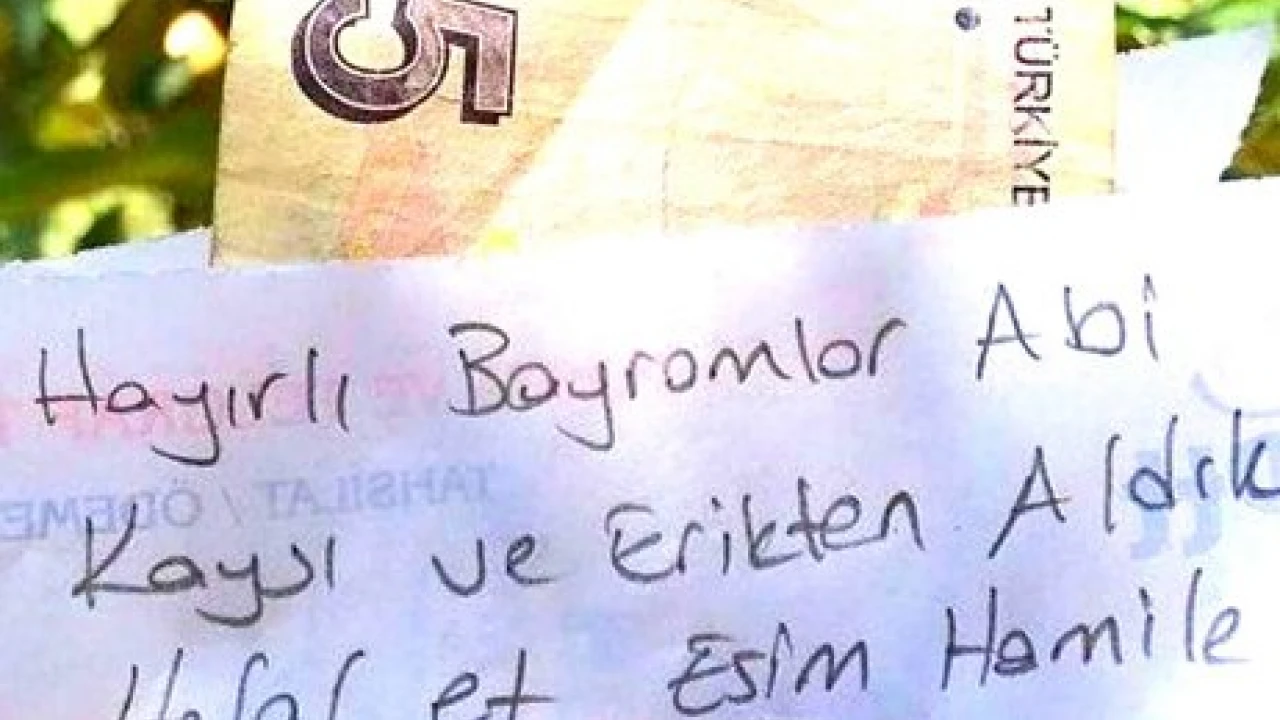 5
TÜRKİYE
Hayırlı Bayramlar Abi
TAHSİLAT / ÖDEME
Kaysı ve Erikten Aldık
Helal et Esim Hamile